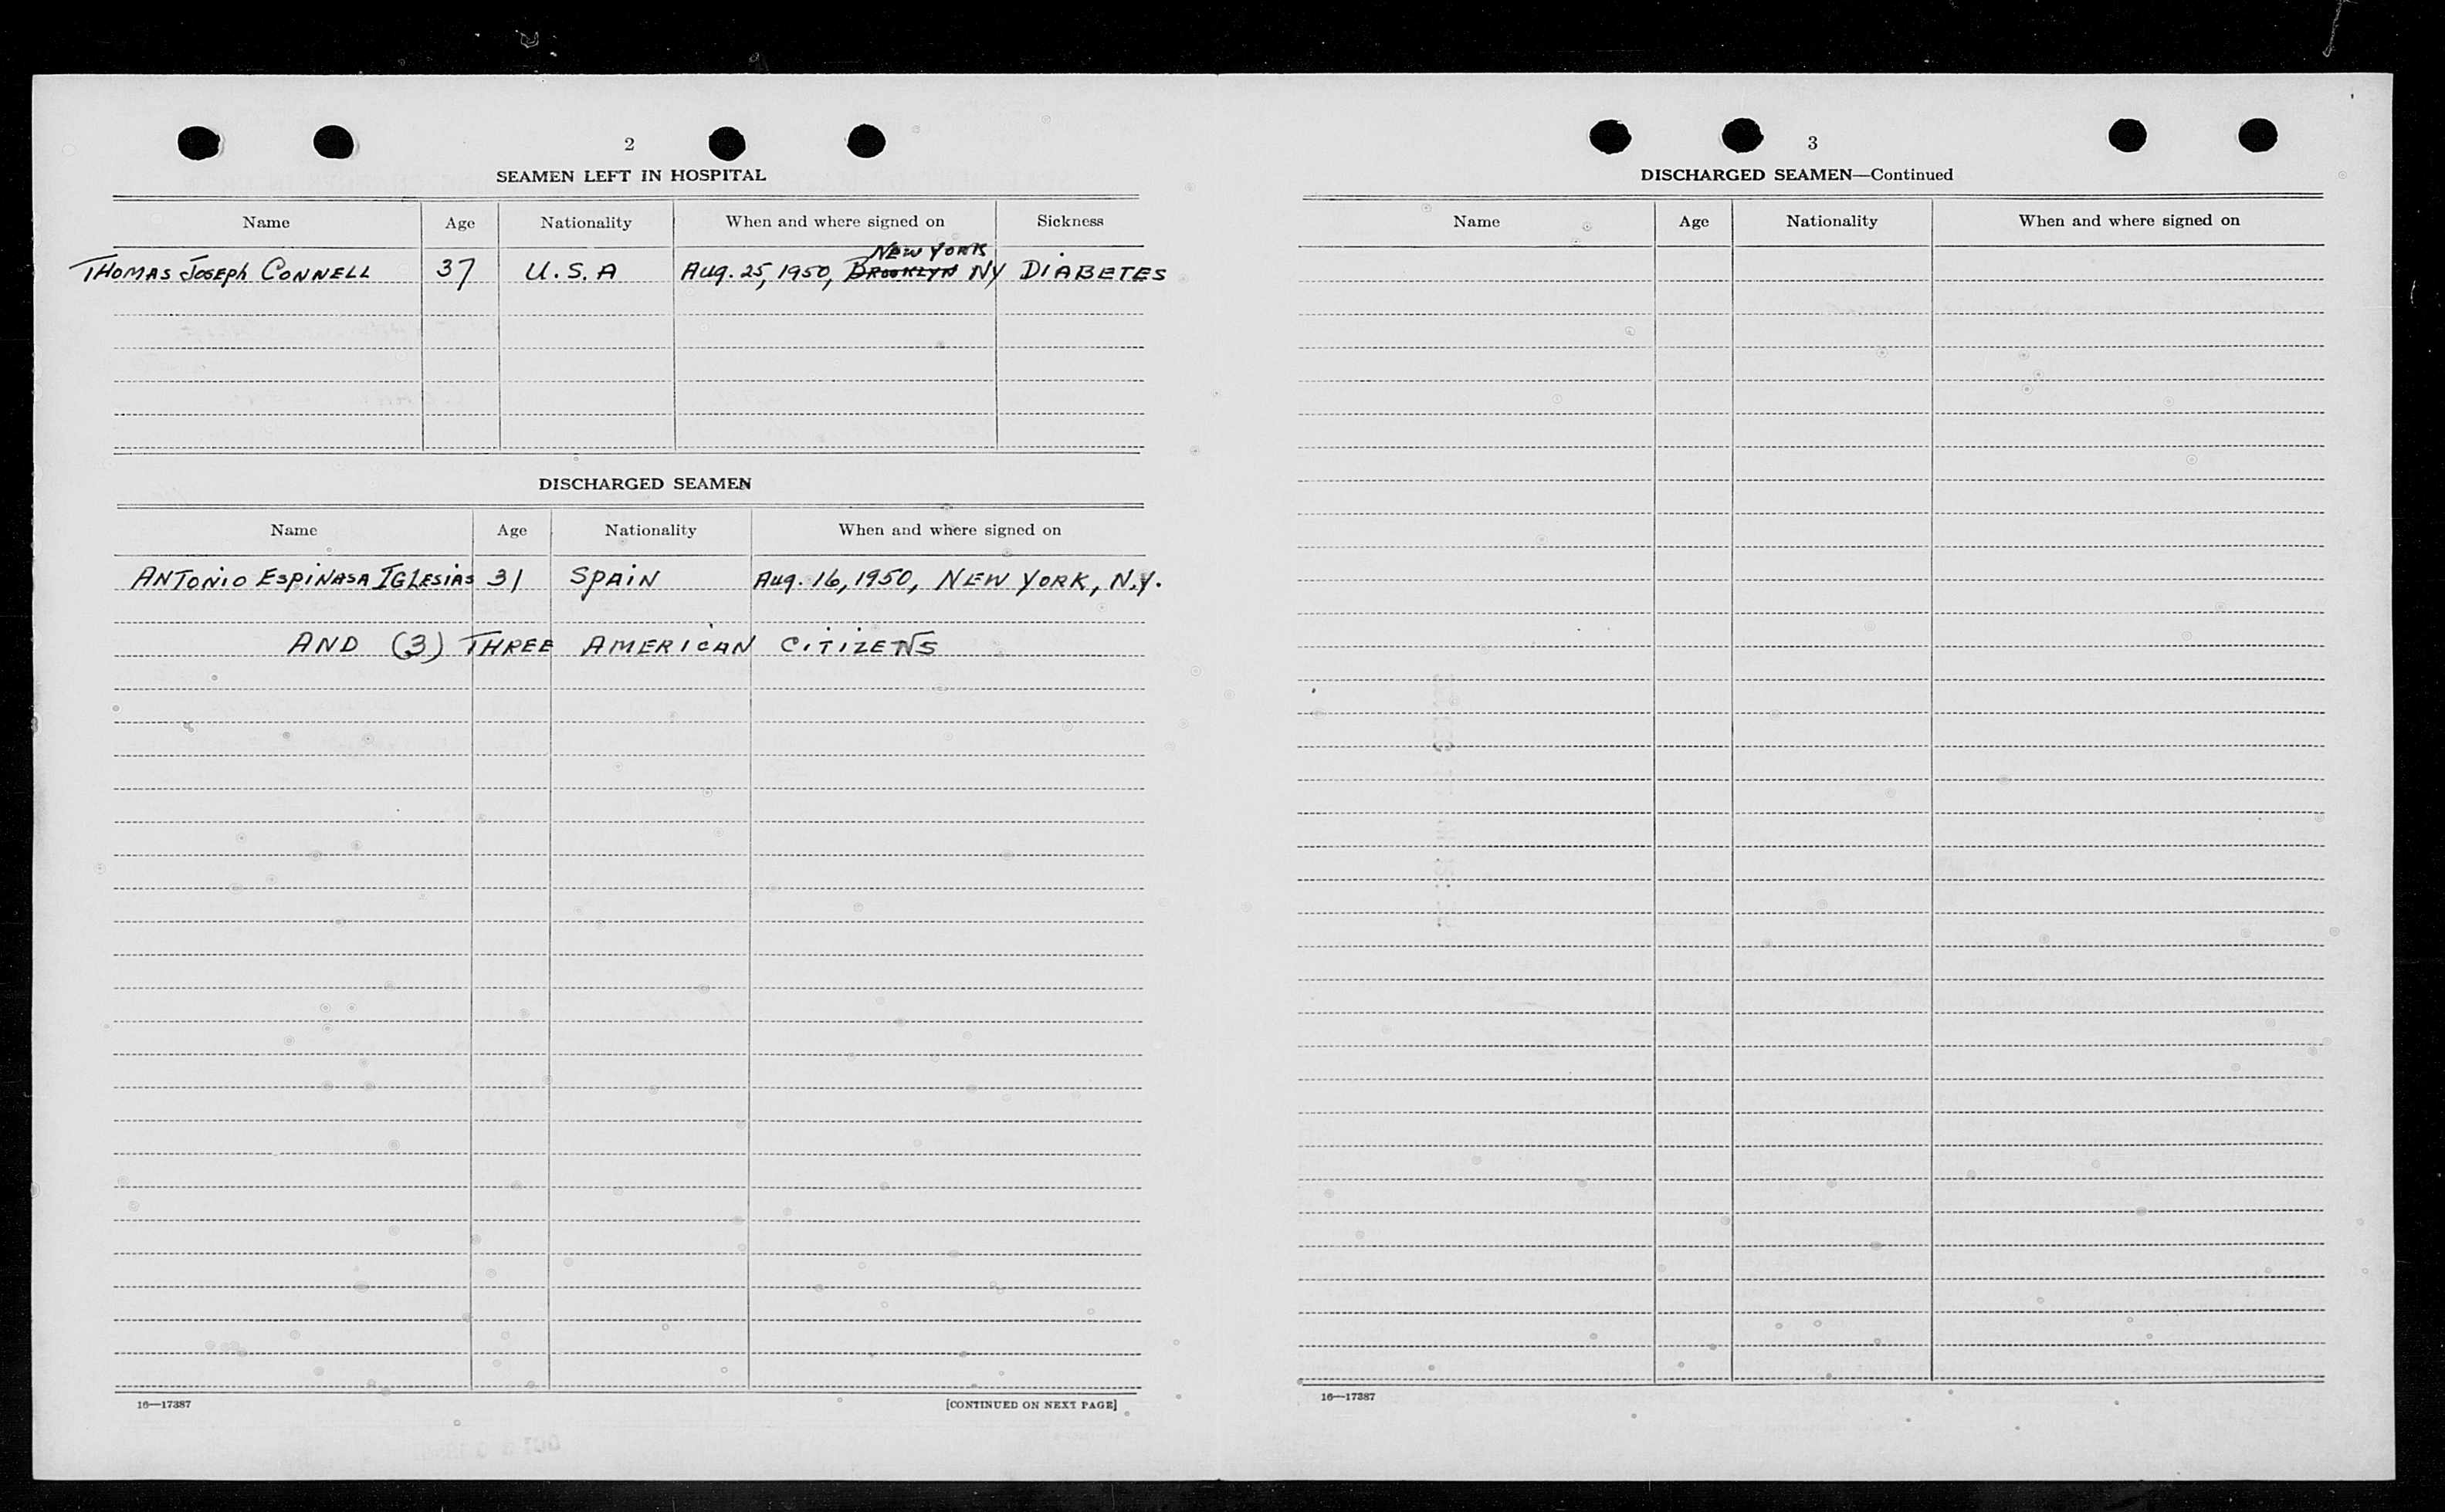 2
SEAMEN LEFT IN HOSPITAL
Name Age Nationality When and where signed on Sickness
NEW YORK
THOMAS JOSEPH CONNELL 37 U.S.A AUG. 25, 1950, BROOKLYN NY DIABETES
DISCHARGED SEAMEN
Name Age Nationality When and where signed on
ANTONIO ESPINASA IGLESIAS 31 SPAIN AUG. 16, 1950, NEW YORK, N.Y.
AND (3) THREE AMERICAN CITIZENS
16—17387 [CONTINUED ON NEXT PAGE]
3
DISCHARGED SEAMEN—Continued
Name Age Nationality When and where signed on
16—17387